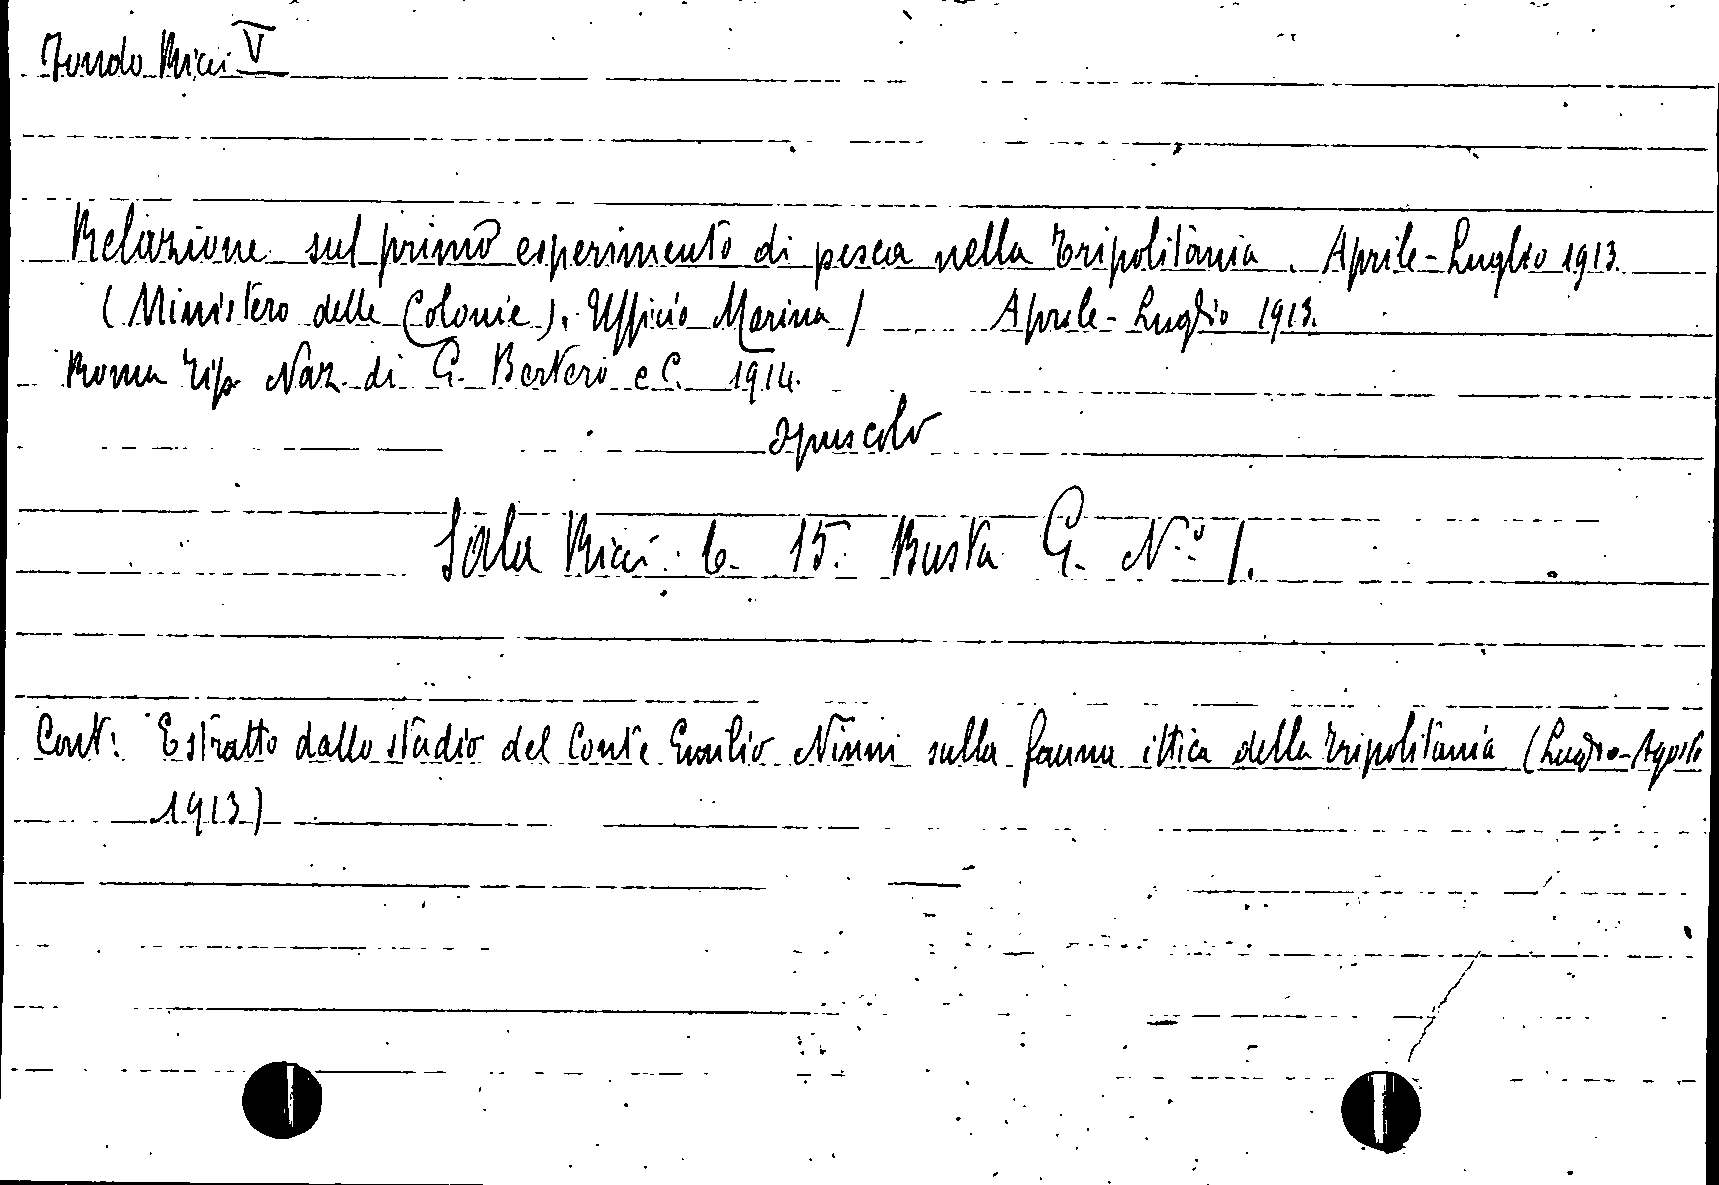 Fondo Ricci V
Relazione sul primo esperimento di pesca nella Tripolitania. Aprile-Luglio 1913.
(Ministero delle Colonie). Ufficio Marina / Aprile-Luglio 1913.
Roma Tip. Naz. di G. Bertero e C. 1914.
opuscolo
Sala Ricci. 6. 15. Busta G. N.º 1.
Cont: Estratto dallo studio del Conte Emilio Ninni sulla fauna ittica della Tripolitania (Luglio-Agosto
1913)